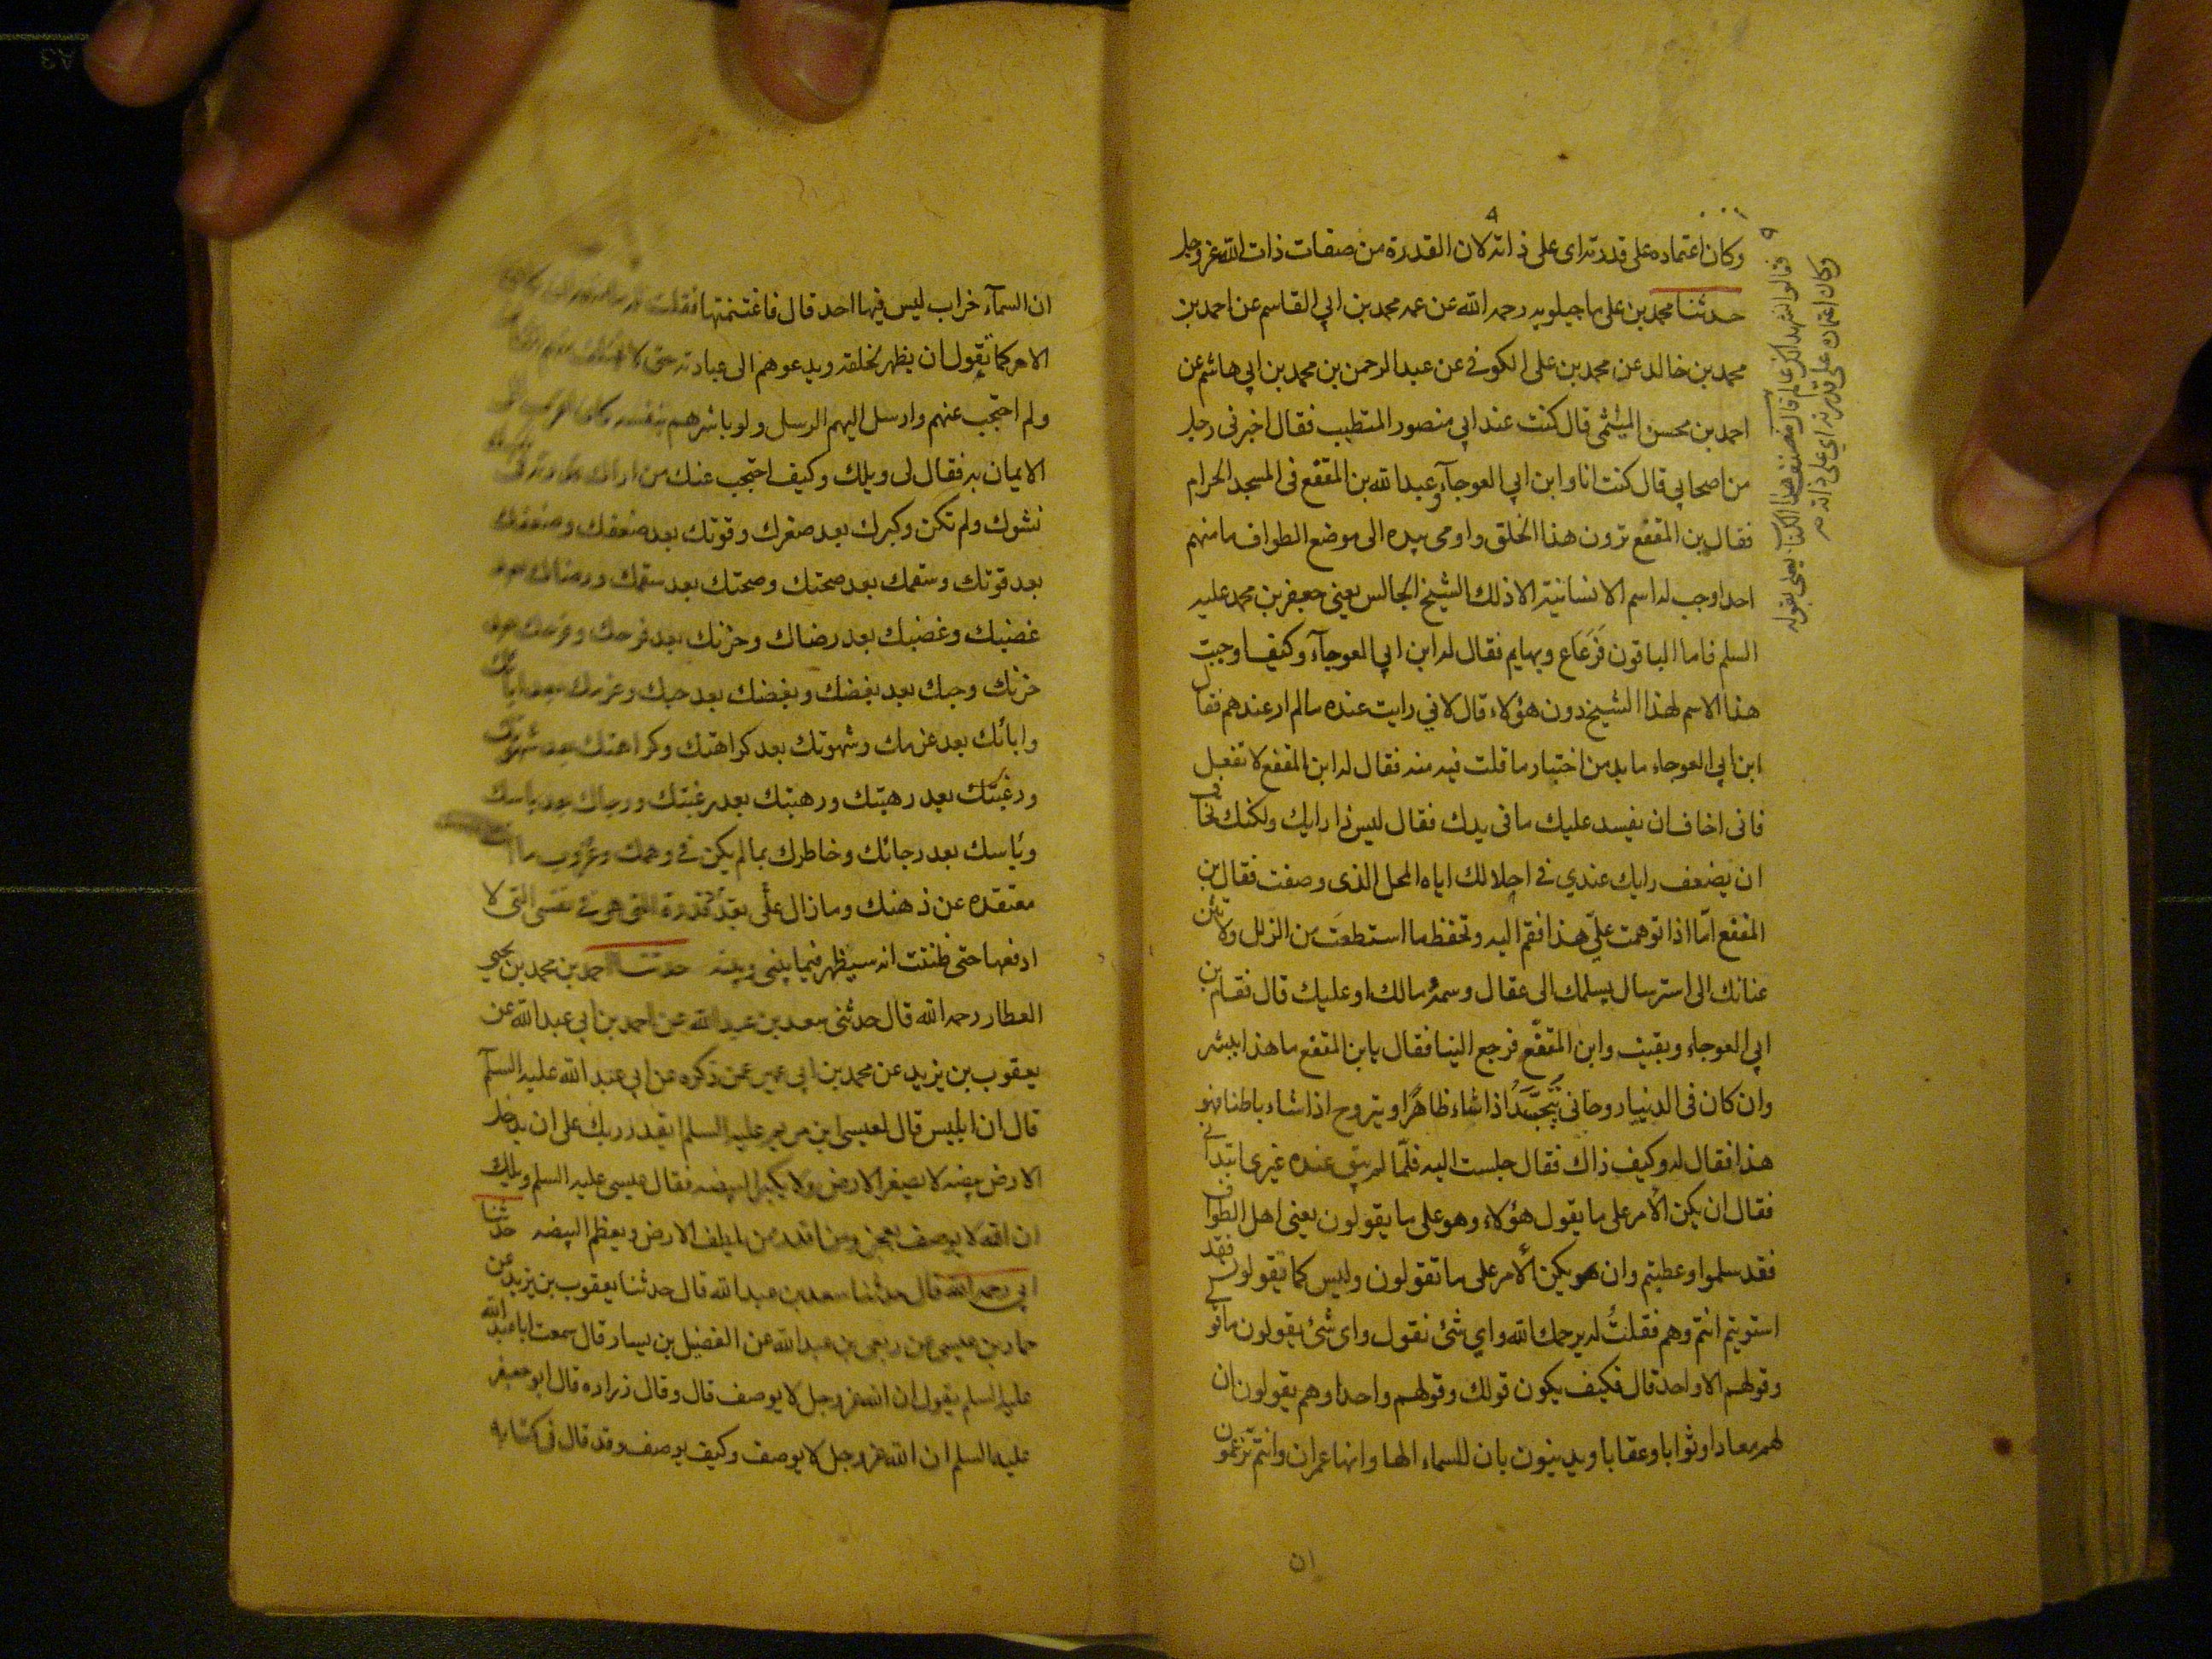 وكان اعتماده على قدرته اى على ذاته لان القدرة من صفات ذات الله عزوجل
حدثنا محمد بن على ماجيلويه رحمه الله عن عمه محمد بن ابي القاسم عن احمد بن
محمد بن خالد عن محمد بن على الكوفى عن عبد الرحمن بن محمد بن ابي هاشم عن
احمد بن محسن الميثمى قال كنت عند ابي منصور المتطبب فقال اخبرنى رجل
من اصحابي قال كنت انا وابن ابي العوجآء وعبد الله بن المقفع فى المسجد الحرام
فقال بن المقفع ترون هذا الخلق واومى بيده الى موضع الطواف ما منهم
احد اوجب له اسم الانسانية الا ذلك الشيخ الجالس يعنى جعفر بن محمد عليه
السلم فاما الباقون فرعاع وبهايم فقال له ابن ابي العوجآء وكيف اوجبت
هذا الاسم لهذا الشيخ دون هؤلاء قال لاني رايت عنده مالم ار عندهم فقال
ابن ابي العوجاء ما بد من اختبار ما قلت فيه منه فقال له ابن المقفع لا تفعل
فانى اخاف ان يفسد عليك ما فى يدك فقال ليس ذا رايك ولكنك تخاف
ان يضعف رايك عندي فى احلالك اياه المحل الذى وصفت فقال بن
المقفع امّا اذا توهمت علىّ هذا فقم اليه وتحفظ ما استطعت من الزلل ولا تثن
عنانك الى استرسال يسلمك الى عقال وسمه مالك او عليك قال فقام بن
ابي العوجاء وبقيت وابن المقفّع فرجع الينا فقال يا بن المقفع ما هذا ببشر
وان كان فى الدنيا روحانى يتجسّد اذا شاء ظاهرًا ويتروح اذا شاء باطنا فهو
هذا فقال له وكيف ذاك فقال جلست اليه فلمّا لم يبق عنده غيرى ابتدأنى
فقال ان يكن الأمر على ما يقول هؤلاء وهو على ما يقولون يعنى اهل الطواف
فقد سلموا وعطبتم وان يكن الأمر على ما تقولون وليس كما تقولون فقد
استويتم انتم وهم فقلتُ له يرحمك الله واي شئ نقول واى شئ يقولون ما قولى
وقولهم الا واحد قال فكيف يكون قولك وقولهم واحدا وهم يقولون ان
لهم معادا وثوابا وعقابا ويدينون بان للسماء الها وانها عمران وانتم تزعمون
ان
وكان اعتماده على قدرته اي على ذاته
ان السمآء خراب ليس فيها احد قال فاغتنمتها فقلت
الامر كما تقول ان يظهر لخلقه ويدعوهم الى عبادته حتى لا
ولم احتجب عنهم وارسل اليهم الرسل ولو باشرهم بنفسه كان
الايمان به فقال لى ويلك وكيف احتجب عنك من اراك
نشوك ولم تكن وكبرك بعد صغرك وقوتك بعد ضعفك وضعفك
بعد قوتك وسقمك بعد صحتك وصحتك بعد سقمك ورضاك بعد
غضبك وغضبك بعد رضاك وحزنك بعد فرحك وفرحك بعد
حزنك وحبك بعد بغضك وبغضك بعد حبك وعزمك بعد ابائك
وابائك بعد عزمك وشهوتك بعد كراهتك وكراهتك بعد شهوتك
ورغبتك بعد رهبتك ورهبتك بعد رغبتك ورجاك بعد ياسك
وياسك بعد رجائك وخاطرك بما لم يكن فى وهمك وعزوب ما انت
معتقده عن ذهنك وما زال علىّ يعد قدرته التى هى فى نفسى التى لا
ادفعها حتى ظننت انه سيظهر فيما بينى وبينه حدثنا احمد بن محمد بن يحيى
العطار رحمه الله قال حدثنى سعد بن عبد الله عن احمد بن ابي عبد الله عن
يعقوب بن يزيد عن محمد بن ابي عمير عمن ذكره عن ابي عبد الله عليه السلم
قال ان ابليس قال لعيسى ابن مريم عليه السلم ايقدر ربك على ان يدخل
الارض بيضه لا يصغر الارض ولا يكبر البيضه فقال عيسى عليه السلم ويلك
ان الله لا يوصف بعجز ومن اقدر ممن يلطف الارض ويعظم البيضه حدثنا
ابي رحمه الله قال حدثنا سعد بن عبد الله قال حدثنا يعقوب بن يزيد عن
حماد بن عيسى عن ربعى بن عبد الله عن الفضيل بن يسار قال سمعت ابا عبد الله
عليه السلم يقول ان الله عز وجل لا يوصف قال وقال زراره قال ابو جعفر
عليه السلم ان الله عز وجل لا يوصف وكيف يوصف وقد قال فى كتابه